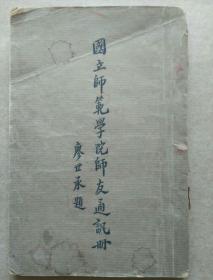 國立師範學院師友通訊冊
廖世承題